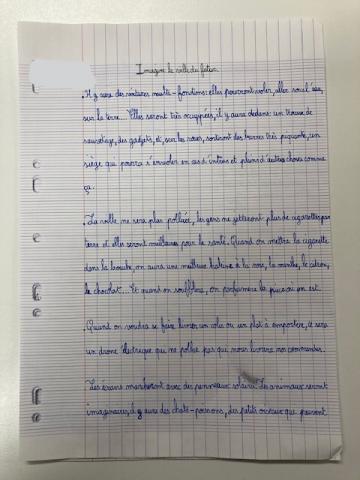 Imagine la ville du futur.
. Il y aura des voitures multi-fonctions : elles pourront voler, aller sous l'eau,
sur la terre... Elles seront très occupées, il y aura dedans : un trousse de
sauvetage, des gadgets, et, sur les roues, sortiront des barres très piquante, un
siège qui pourra s'envoler en cas d'ennuis et pleins d'autres choses comme
ça.
. La ville ne sera plus polluée, les gens ne jetteront plus de cigarettes par
terre et elles seront meilleures pour la santé. Quand on mettra la cigarette
dans la bouche, on aura une meilleure haleine à la rose, la menthe, le citron,
le chocolat. Et quand on soufflera, on parfumera la pièce où on est.
. Quand on voudra se faire livrer un colis ou un plat à emporter, ce sera
un drone électrique qui ne pollue pas qui nous livrera nos commandes.
. Les trains marcheront avec des panneaux solaires. Les animaux seront
imaginaires, il y aura des chats-poissons, des petits oiseaux qui peuvent